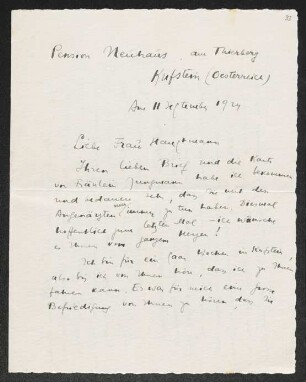 32
Pension Neuhaus am Thierberg
Kufstein (Oesterreich)
Am 11 September 1924
Liebe Frau Hauptmann
Ihren lieben Brief und die Karte
von Fräulein Jungmann habe ich bekommen
und bedaure sehr, dass Sie mit den
zu tun haben. Diesmal
hoffentlich zum letzten Mal – ich wünsche
es Ihnen von ganzem Herzen!
Ich bin für ein paar Wochen in Kufstein,
also bis ich von Ihnen höre, dass ich zu Ihnen
fahren kann. Es war für mich eine grosse
Befriedigung von Ihnen zu hören, dass Sie